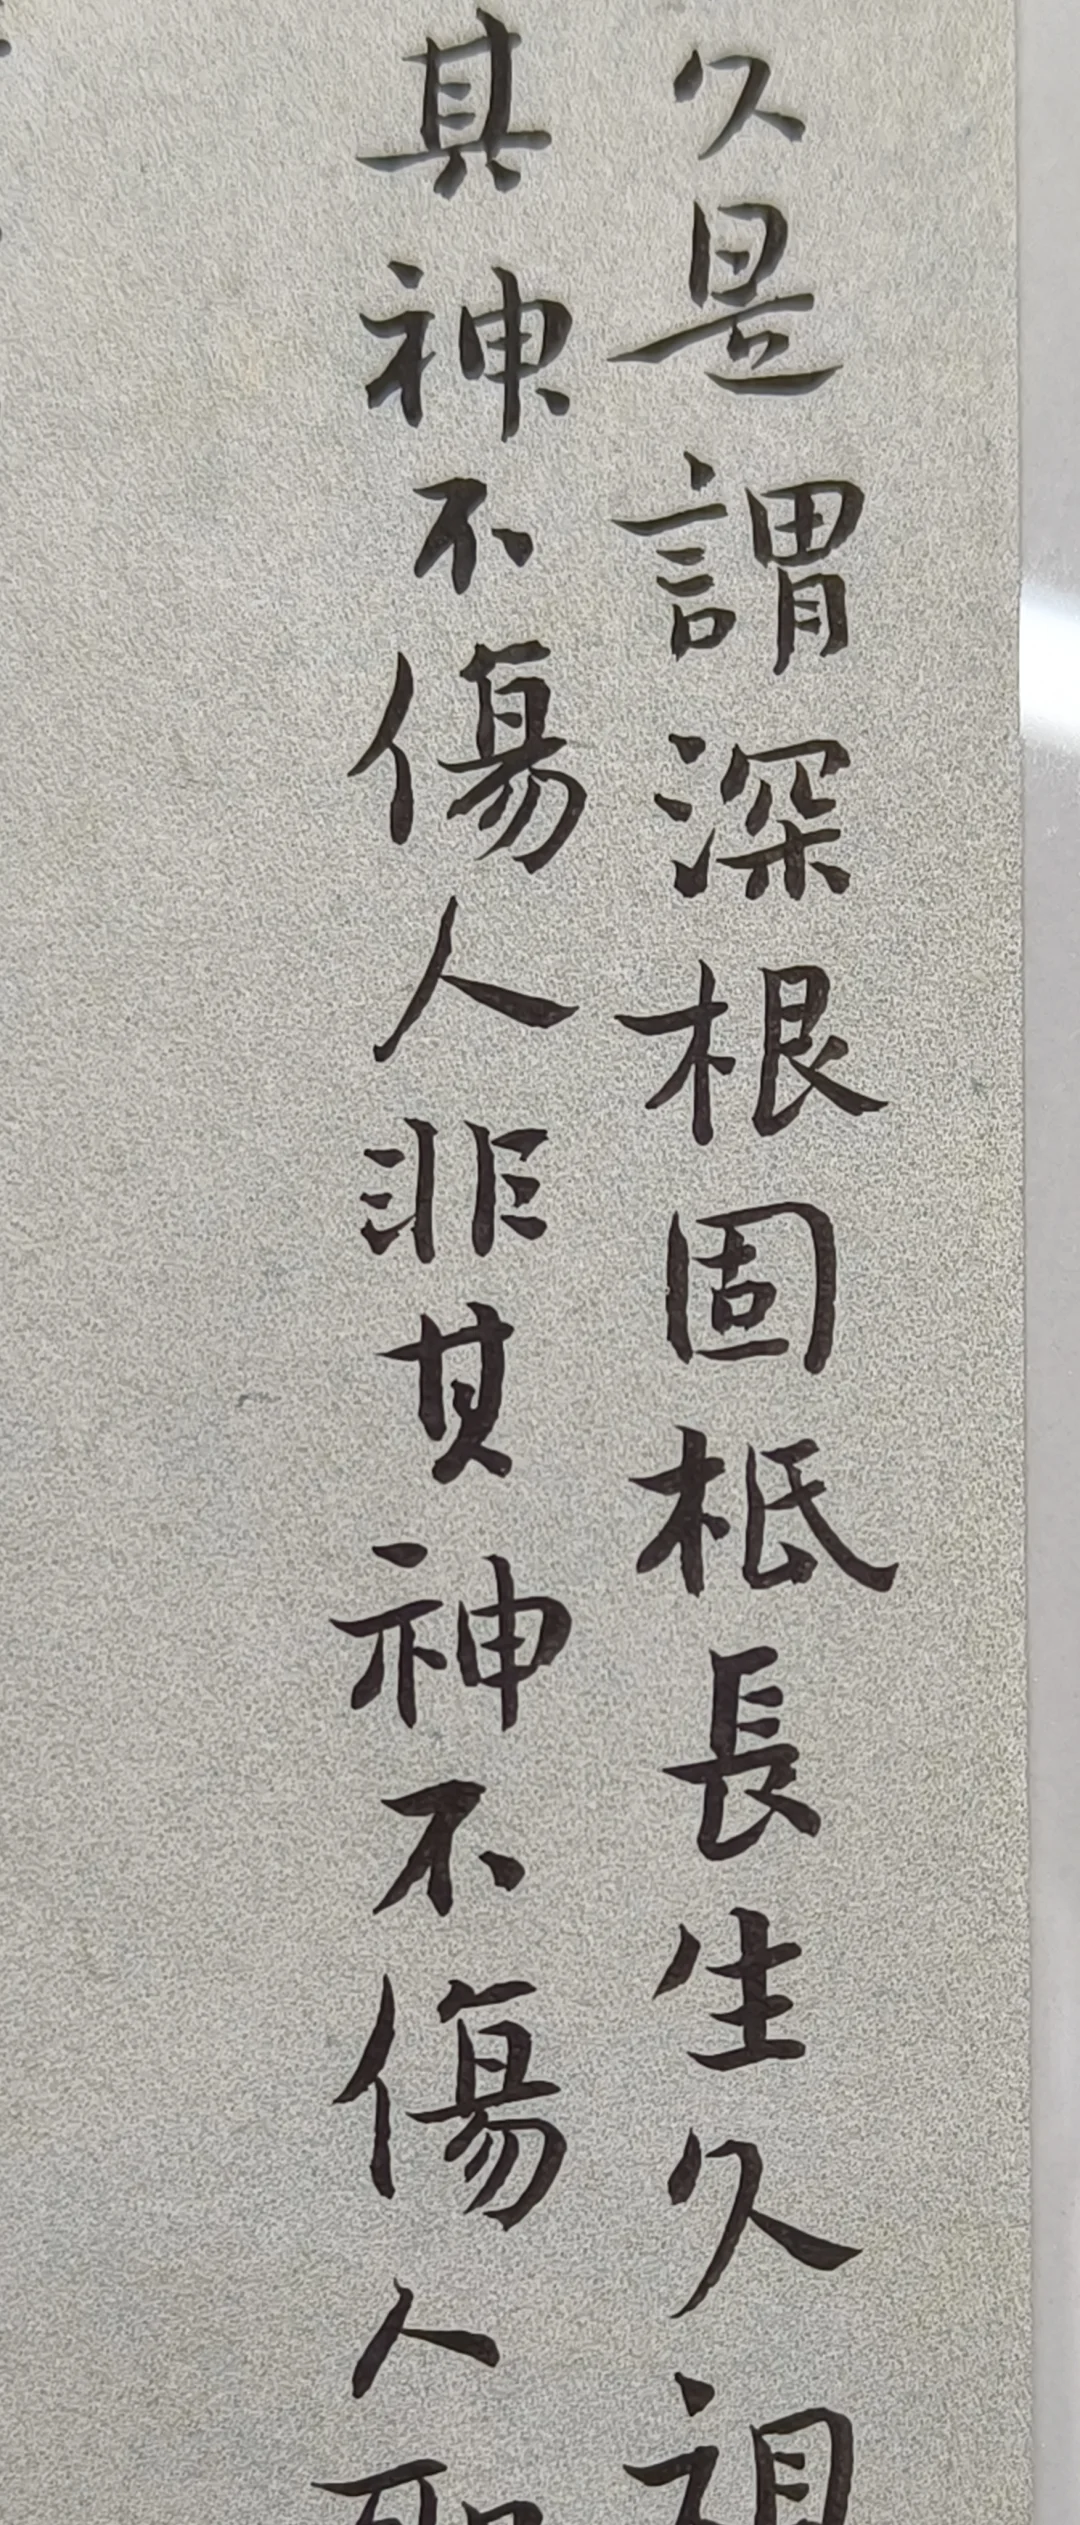 久是謂深根固柢長生久視
其神不傷人非其神不傷人